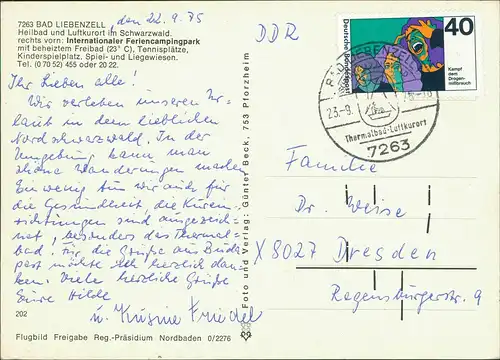 7263 BAD LIEBENZELL
den 22.9.75
Heilbad und Luftkurort im Schwarzwald.
rechts vorn: Internationaler Feriencampingpark
mit beheiztem Freibad (23° C), Tennisplätze,
Kinderspielplatz, Spiel- und Liegewiesen.
Tel. (0 70 52) 455 oder 20 22.
Ihr Lieben alle!
Wir verleben unseren Ur-
laub in dem lieblichen
Nordschwarzwald. In der
Umgebung kann man
schöne Wanderungen machen
Ein wenig tun wir auch für
die Gesundheit, die Kurein-
richtungen sind ausgezeich-
net, besonders das Thermal-
bad. Für die Grüße aus Buda
pest möchte ich herzlich dan-
ken. Viele herzliche Grüße
Eure Hilde
u. Friedel
202
Flugbild Freigabe Reg.-Präsidium Nordbaden 0/2276
Foto und Verlag: Günter Beck, 753 Pforzheim
DDR
Deutsche Bundespost
40
Kampf
dem
Drogen-
mißbrauch
BAD LIEBENZELL
23.-9.
Thermalbad-Luftkurort
7263
Familie
Dr. Weise
X 8027 Dresden
Regensburgerstr. 9